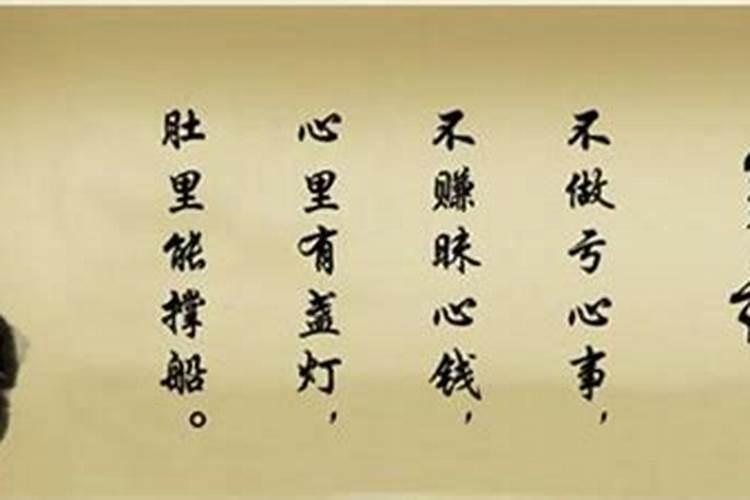 不做亏心事，
不赚昧心钱，
心里有盏灯，
肚里能撑船。